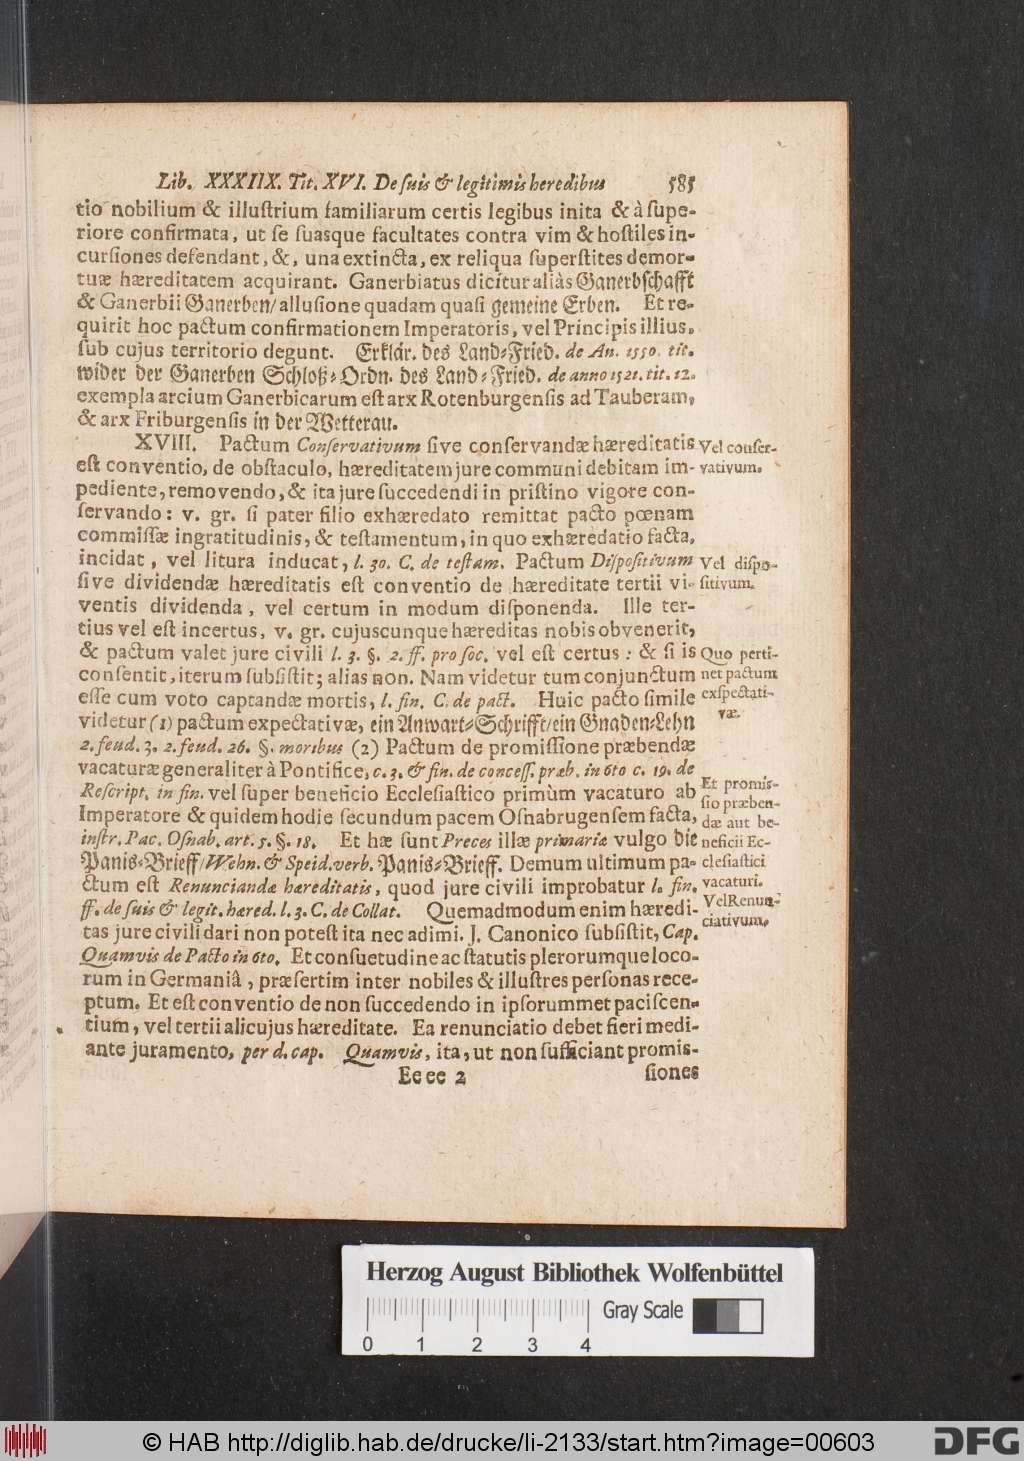 Lib. XXXIIX. Tit. XVI. De ſuis & legitimis heredibus 585
tio nobilium & illuſtrium familiarum certis legibus inita & à ſupe-
riore confirmata, ut ſe ſuasque facultates contra vim & hoſtiles in-
curſiones defendant, &, una extincta, ex reliqua ſuperſtites demor-
tuæ hæreditatem acquirant. Ganerbiatus dicitur aliàs Ganerbſchafft
& Ganerbii Ganerben/ alluſione quadam quaſi gemeine Erben. Et re-
quirit hoc pactum confirmationem Imperatoris, vel Principis illius,
ſub cujus territorio degunt. Erklär. des Land-Fried. de An. 1550. tit.
wider der Ganerben Schloß-Ordn. des Land-Fried. de anno 1521. tit. 12.
exempla arcium Ganerbicarum eſt arx Rotenburgenſis ad Tauberam,
& arx Friburgenſis in der Wetterau.
XVIII. Pactum Conſervativum ſive conſervandæ hæreditatis
eſt conventio, de obſtaculo, hæreditatem jure communi debitam im-
pediente, removendo, & ita jure ſuccedendi in priſtino vigore con-
ſervando: v. gr. ſi pater filio exhæredato remittat pacto pœnam
commiſſæ ingratitudinis, & teſtamentum, in quo exhæredatio facta,
incidat, vel litura inducat, l. 30. C. de teſtam. Pactum Diſpoſitivum
ſive dividendæ hæreditatis eſt conventio de hæreditate tertii vi-
ventis dividenda, vel certum in modum diſponenda. Ille ter-
tius vel eſt incertus, v. gr. cujuscunque hæreditas nobis obvenerit,
& pactum valet jure civili l. 3. §. 2. ff. pro ſoc. vel eſt certus: & ſi is
conſentit, iterum ſubſiſtit; alias non. Nam videtur tum conjunctum
eſſe cum voto captandæ mortis, l. fin. C. de pact. Huic pacto ſimile
videtur (1) pactum expectativæ, ein Anwart-Schrifft/ ein Gnaden-Lehn
2. feud. 3. 2. feud. 26. §. moribus (2) Pactum de promiſſione præbendæ
vacaturæ generaliter à Pontifice, c. 3. & fin. de conceſſ. præb. in 6to c. 19. de
Reſcript. in fin. vel ſuper beneficio Eccleſiaſtico primùm vacaturo ab
Imperatore & quidem hodie ſecundum pacem Oſnabrugenſem facta,
inſtr. Pac. Oſnab. art. 5. §. 18. Et hæ ſunt Preces illæ primariæ vulgo die
Panis-Brieff/ Wehn. & Speid. verb. Panis-Brieff. Demum ultimum pa-
ctum eſt Renunciandæ hæreditatis, quod jure civili improbatur l. fin.
ff. de ſuis & legit. hæred. l. 3. C. de Collat. Quemadmodum enim hæredi-
tas jure civili dari non poteſt ita nec adimi. J. Canonico ſubſiſtit, Cap.
Quamvis de Pacto in 6to. Et conſuetudine ac ſtatutis plerorumque loco-
rum in Germaniâ, præſertim inter nobiles & illuſtres perſonas rece-
ptum. Et eſt conventio de non ſuccedendo in ipſorummet paciſcen-
tium, vel tertii alicujus hæreditate. Ea renunciatio debet fieri medi-
ante juramento, per d. cap. Quamvis, ita, ut non ſufficiant promiſ-
Ee ee 2 ſiones
Vel conſer-
vativum.
Vel diſpo-
ſitivum.
Quo perti-
net pactum
exſpectati-
væ.
Et promiſ-
ſio præben-
dæ aut be-
neficii Ec-
cleſiaſtici
vacaturi.
Vel Renun-
ciativum.
Herzog August Bibliothek Wolfenbüttel
Gray Scale
0 1 2 3 4
© HAB http://diglib.hab.de/drucke/li-2133/start.htm?image=00603
DFG